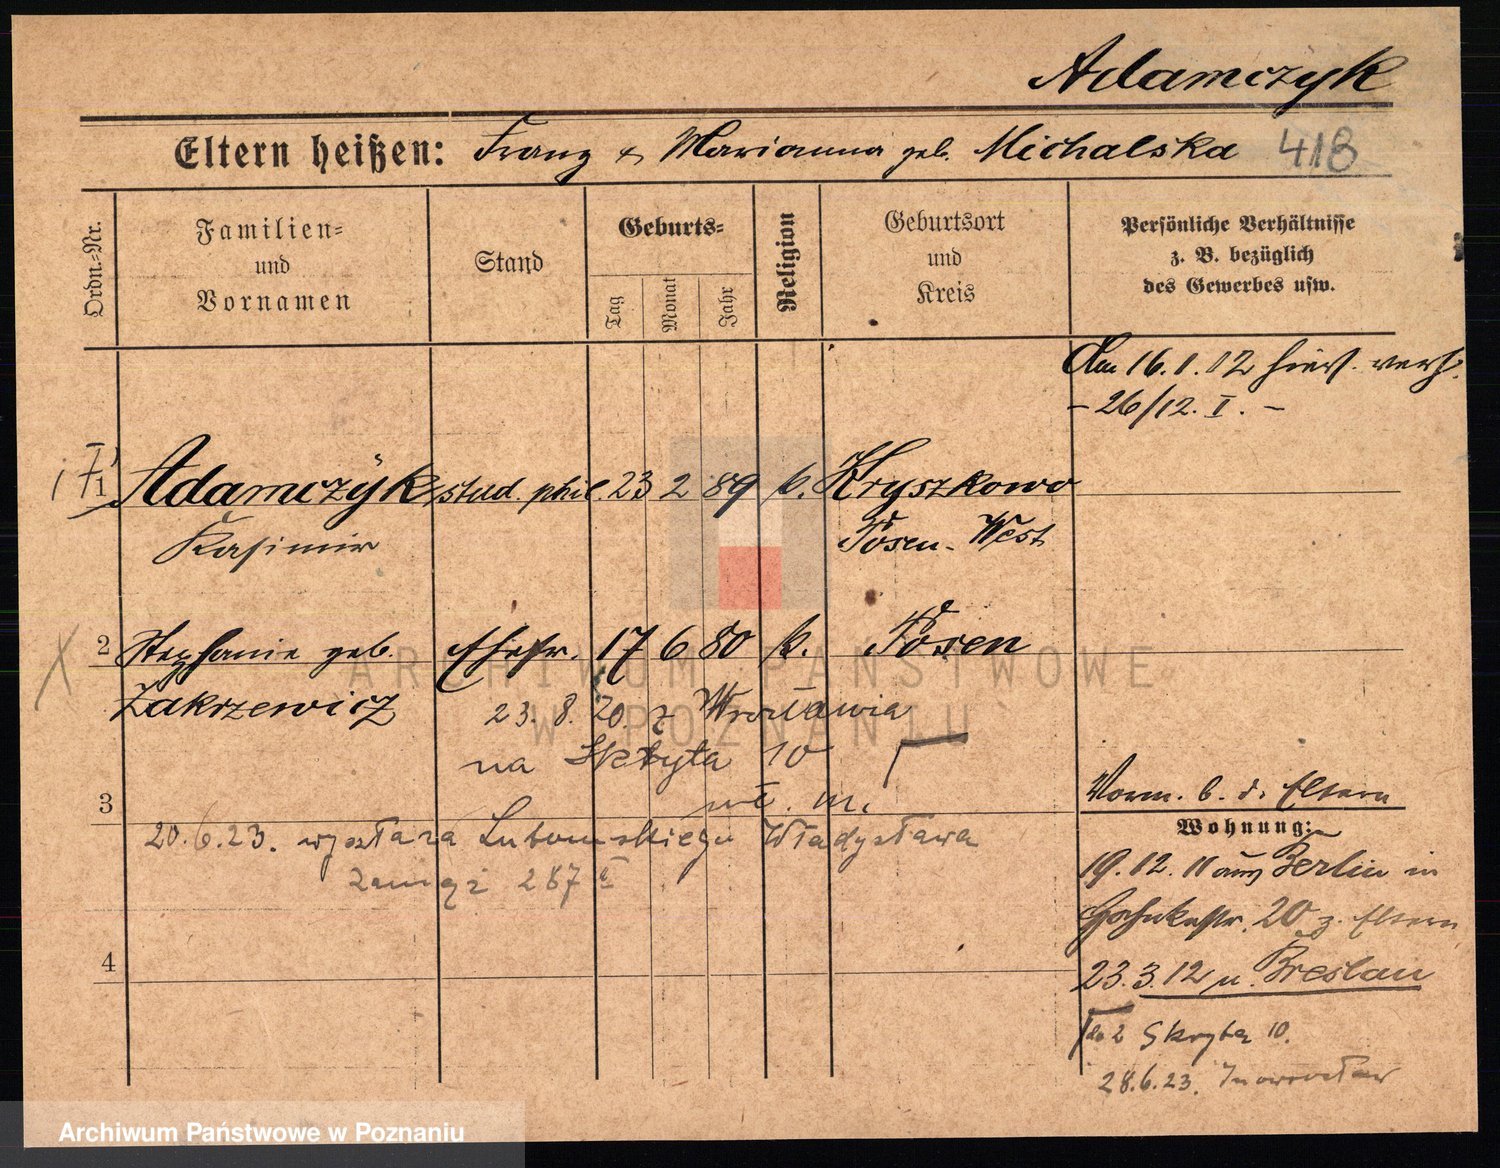 Adamczyk
Eltern heißen: Franz & Marianna geb. Michalska 418
Ordn.=Nr.
Familien=
und
Vornamen
Stand
Geburts=
Tag
Monat
Jahr
Religion
Geburtsort
und
Kreis
Persönliche Verhältnisse
z. B. bezüglich
des Gewerbes usw.
Am 16.1.12 hier verh.
- 26/12. I. -
1 Adamczyk stud. phil. 23 2 89 k. Kryszkowo
Kasimir Posen-West
2 Stephanie geb. Ehefr. 17 6 80 k. Posen
Zakrzewicz
23. 8. 20. z Wrocławia
na Skryta 10
wł. m.
Vorm. b. d. Eltern
3
Wohnung:
20.6.23. Lubomskiego Władysława
Zamąż 287
19.12.11 aus Berlin in
20 z. Eltern
4
23.3.12 n. Breslau
do 2 Skryta 10.
28.6.23. Inowrocław
ARCHIWUM PAŃSTWOWE
W POZNANIU
Archiwum Państwowe w Poznaniu